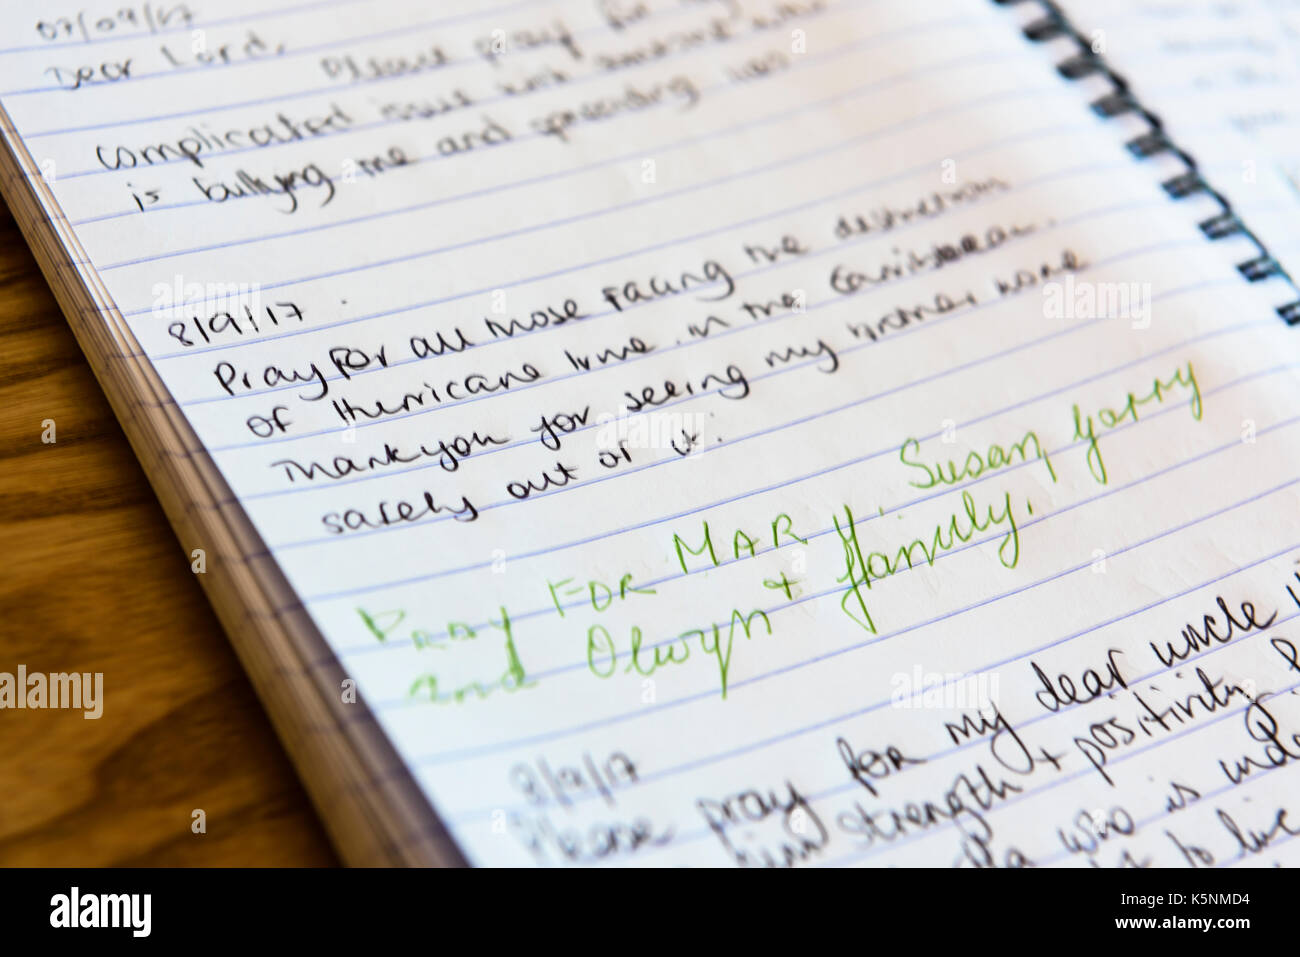 07/09/17
Dear Lord,
Please pray for
complicated issue with
is bullying me and spreading lies
8/9/17
Pray for all those facing the destruction
of Hurricane Irma in the Caribbean.
Thankyou for seeing my brother home
safely out of it.
PRAY FOR MARY. Susan, Garry
and Olwyn + family.
8/9/17
Please pray for my dear uncle
him strength + positivity
who is
to live
alamy
Image ID: K5NMD4
www.alamy.com